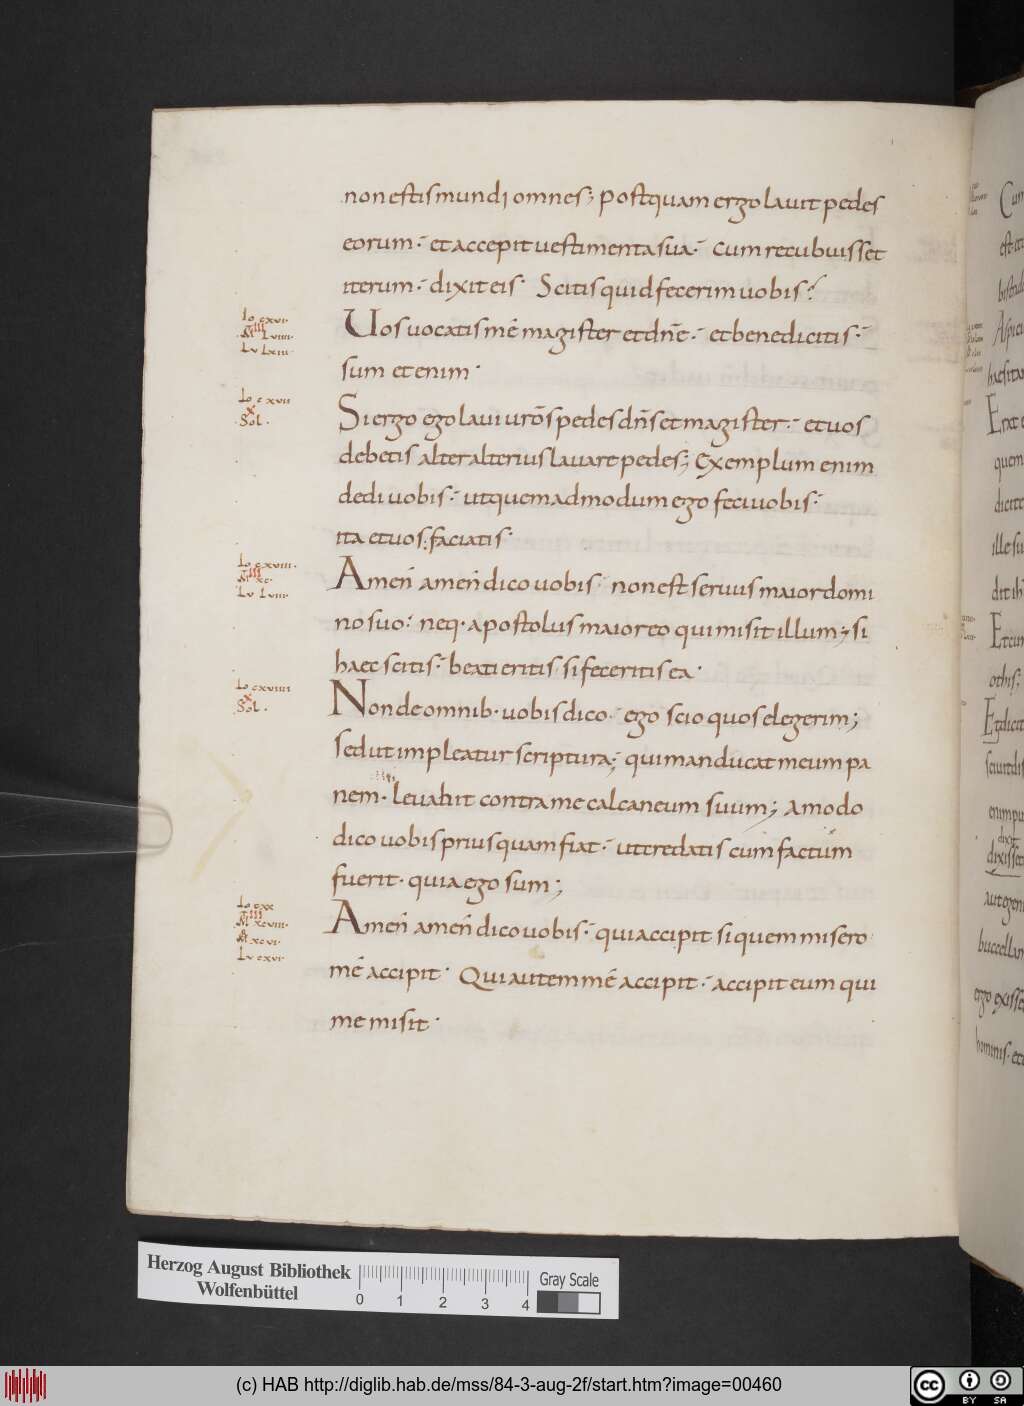 non estis mundi omnes; postquam ergo lavit pedes
eorum. et accepit uestimenta sua. cum recubuisset
iterum. dixit eis. Scitis quid fecerim uobis?
Io cxvi
IIII
M Lviiii.
Lv Lxiii
Uos uocatis mé magister et dn̄e. et benedicitis.
sum etenim.
Io cxvii
X
Sol.
Si ergo ego laui ur̄os pedes dn̄s et magister. et uos
debetis alter alterius lauare pedes; Exemplum enim
dedi uobis. ut quemadmodum ego feci uobis.
ita et uos faciatis.
Io cxviii.
III
M xc.
Lv Lviii
Amen̄ amen̄ dico uobis. non est seruus maior domi
no suo. neq. apostolus maior eo qui misit illum; si
haec scitis. beati eritis si feceritis ea.
Io cxviiii
X
Sol.
Non de omnib. uobis dico. ego scio quos elegerim;
sed ut impleatur scriptura; qui manducat meum pa
nem. leuabit contra me calcaneum suum; Amodo
dico uobis prius quam fiat. ut credatis cum factum
fuerit. quia ego sum;
Io cxx
III
M xcviii.
R xcvi.
Lv cxvi
Amen̄ amen̄ dico uobis. qui accipit si quem misero
mé accipit. Qui autem mé accipit. accipit eum qui
me misit.
Cum
est it
Aspici
haesitan
Erat e
quem
dicit
ille su
dit ih
Et cum
othis;
Et dicit
sciut dis
enim pu
dixit
dixisset
aut egeni
buccellam
ergo exisse
hominis. et
Herzog August Bibliothek
Wolfenbüttel
0 1 2 3 4
Gray Scale
(c) HAB http://diglib.hab.de/mss/84-3-aug-2f/start.htm?image=00460
cc BY SA